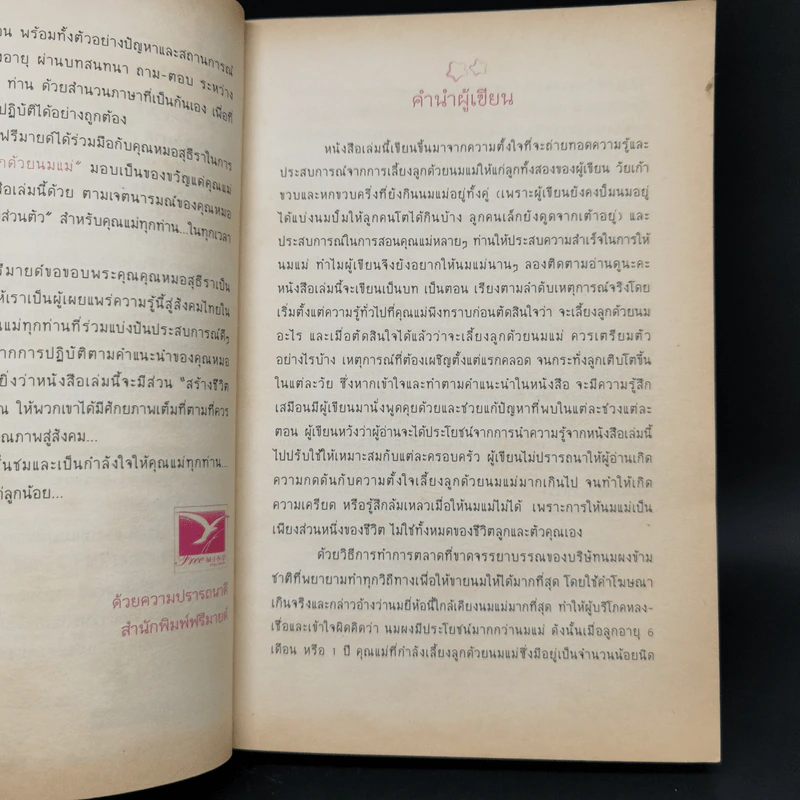 น พร้อมทั้งตัวอย่างปัญหาและสถานการณ์
งอายุ ผ่านบทสนทนา ถาม-ตอบ ระหว่าง
ท่าน ด้วยสำนวนภาษาที่เป็นกันเอง เพื่อที่
ปฏิบัติได้อย่างถูกต้อง
ฟรีมายด์ได้ร่วมมือกับคุณหมอสุธีราในการ
กด้วยนมแม่" มอบเป็นของขวัญแด่คุณแม่
สือเล่มนี้ด้วย ตามเจตนารมณ์ของคุณหมอ
ส่วนตัว" สำหรับคุณแม่ทุกท่าน...ในทุกเวลา
รีมายด์ขอขอบพระคุณคุณหมอสุธีราเป็น
ห้เราเป็นผู้เผยแพร่ความรู้นี้สู่สังคมไทยใน
นแม่ทุกท่านที่ร่วมแบ่งปันประสบการณ์ดีๆ
จากการปฏิบัติตามคำแนะนำของคุณหมอ
ยิ่งว่าหนังสือเล่มนี้จะมีส่วน "สร้างชีวิต
ณ ให้พวกเขาได้มีศักยภาพเต็มที่ตามที่ควร
คุณภาพสู่สังคม...
ชื่นชมและเป็นกำลังใจให้คุณแม่ทุกท่าน...
ลูกน้อย...
Free MIND
ด้วยความปรารถนาดี
สำนักพิมพ์ฟรีมายด์
คำนำผู้เขียน
หนังสือเล่มนี้เขียนขึ้นมาจากความตั้งใจที่จะถ่ายทอดความรู้และ
ประสบการณ์จากการเลี้ยงลูกด้วยนมแม่ให้แก่ลูกทั้งสองของผู้เขียน วัยเก้า
ขวบและหกขวบครึ่งที่ยังกินนมแม่อยู่ทั้งคู่ (เพราะผู้เขียนยังคงปั๊มนมอยู่
ได้แบ่งนมปั๊มให้ลูกคนโตได้กินบ้าง ลูกคนเล็กยังดูดจากเต้าอยู่) และ
ประสบการณ์ในการสอนคุณแม่หลายๆ ท่านให้ประสบความสำเร็จในการให้
นมแม่ ทำไมผู้เขียนจึงยังอยากให้นมแม่นานๆ ลองติดตามอ่านดูนะคะ
หนังสือเล่มนี้จะเขียนเป็นบท เป็นตอน เรียงตามลำดับเหตุการณ์จริงโดย
เริ่มตั้งแต่ความรู้ทั่วไปที่คุณแม่พึงทราบก่อนตัดสินใจว่า จะเลี้ยงลูกด้วยนม
อะไร และเมื่อตัดสินใจได้แล้วว่าจะเลี้ยงลูกด้วยนมแม่ ควรเตรียมตัว
อย่างไรบ้าง เหตุการณ์ที่ต้องเผชิญตั้งแต่แรกคลอด จนกระทั่งลูกเติบโตขึ้น
ในแต่ละวัย ซึ่งหากเข้าใจและทำตามคำแนะนำในหนังสือ จะมีความรู้สึก
เสมือนมีผู้เขียนมานั่งพูดคุยด้วยและช่วยแก้ปัญหาที่พบในแต่ละช่วงแต่ละ
ตอน ผู้เขียนหวังว่าผู้อ่านจะได้ประโยชน์จากการนำความรู้จากหนังสือเล่มนี้
ไปปรับใช้ให้เหมาะสมกับแต่ละครอบครัว ผู้เขียนไม่ปรารถนาให้ผู้อ่านเกิด
ความกดดันกับความตั้งใจเลี้ยงลูกด้วยนมแม่มากเกินไป จนทำให้เกิด
ความเครียด หรือรู้สึกล้มเหลวเมื่อให้นมแม่ไม่ได้ เพราะการให้นมแม่เป็น
เพียงส่วนหนึ่งของชีวิต ไม่ใช่ทั้งหมดของชีวิตลูกและตัวคุณเอง
ด้วยวิธีการทำการตลาดที่ขาดจรรยาบรรณของบริษัทนมผงข้าม
ชาติที่พยายามทำทุกวิถีทางเพื่อให้ขายนมให้ได้มากที่สุด โดยใช้คำโฆษณา
เกินจริงและกล่าวอ้างว่านมยี่ห้อนี้ใกล้เคียงนมแม่มากที่สุด ทำให้ผู้บริโภคหลง-
เชื่อและเข้าใจผิดคิดว่า นมผงมีประโยชน์มากกว่านมแม่ ดังนั้นเมื่อลูกอายุ 6
เดือน หรือ 1 ปี คุณแม่ที่กำลังเลี้ยงลูกด้วยนมแม่ซึ่งมีอยู่เป็นจำนวนน้อยนิด